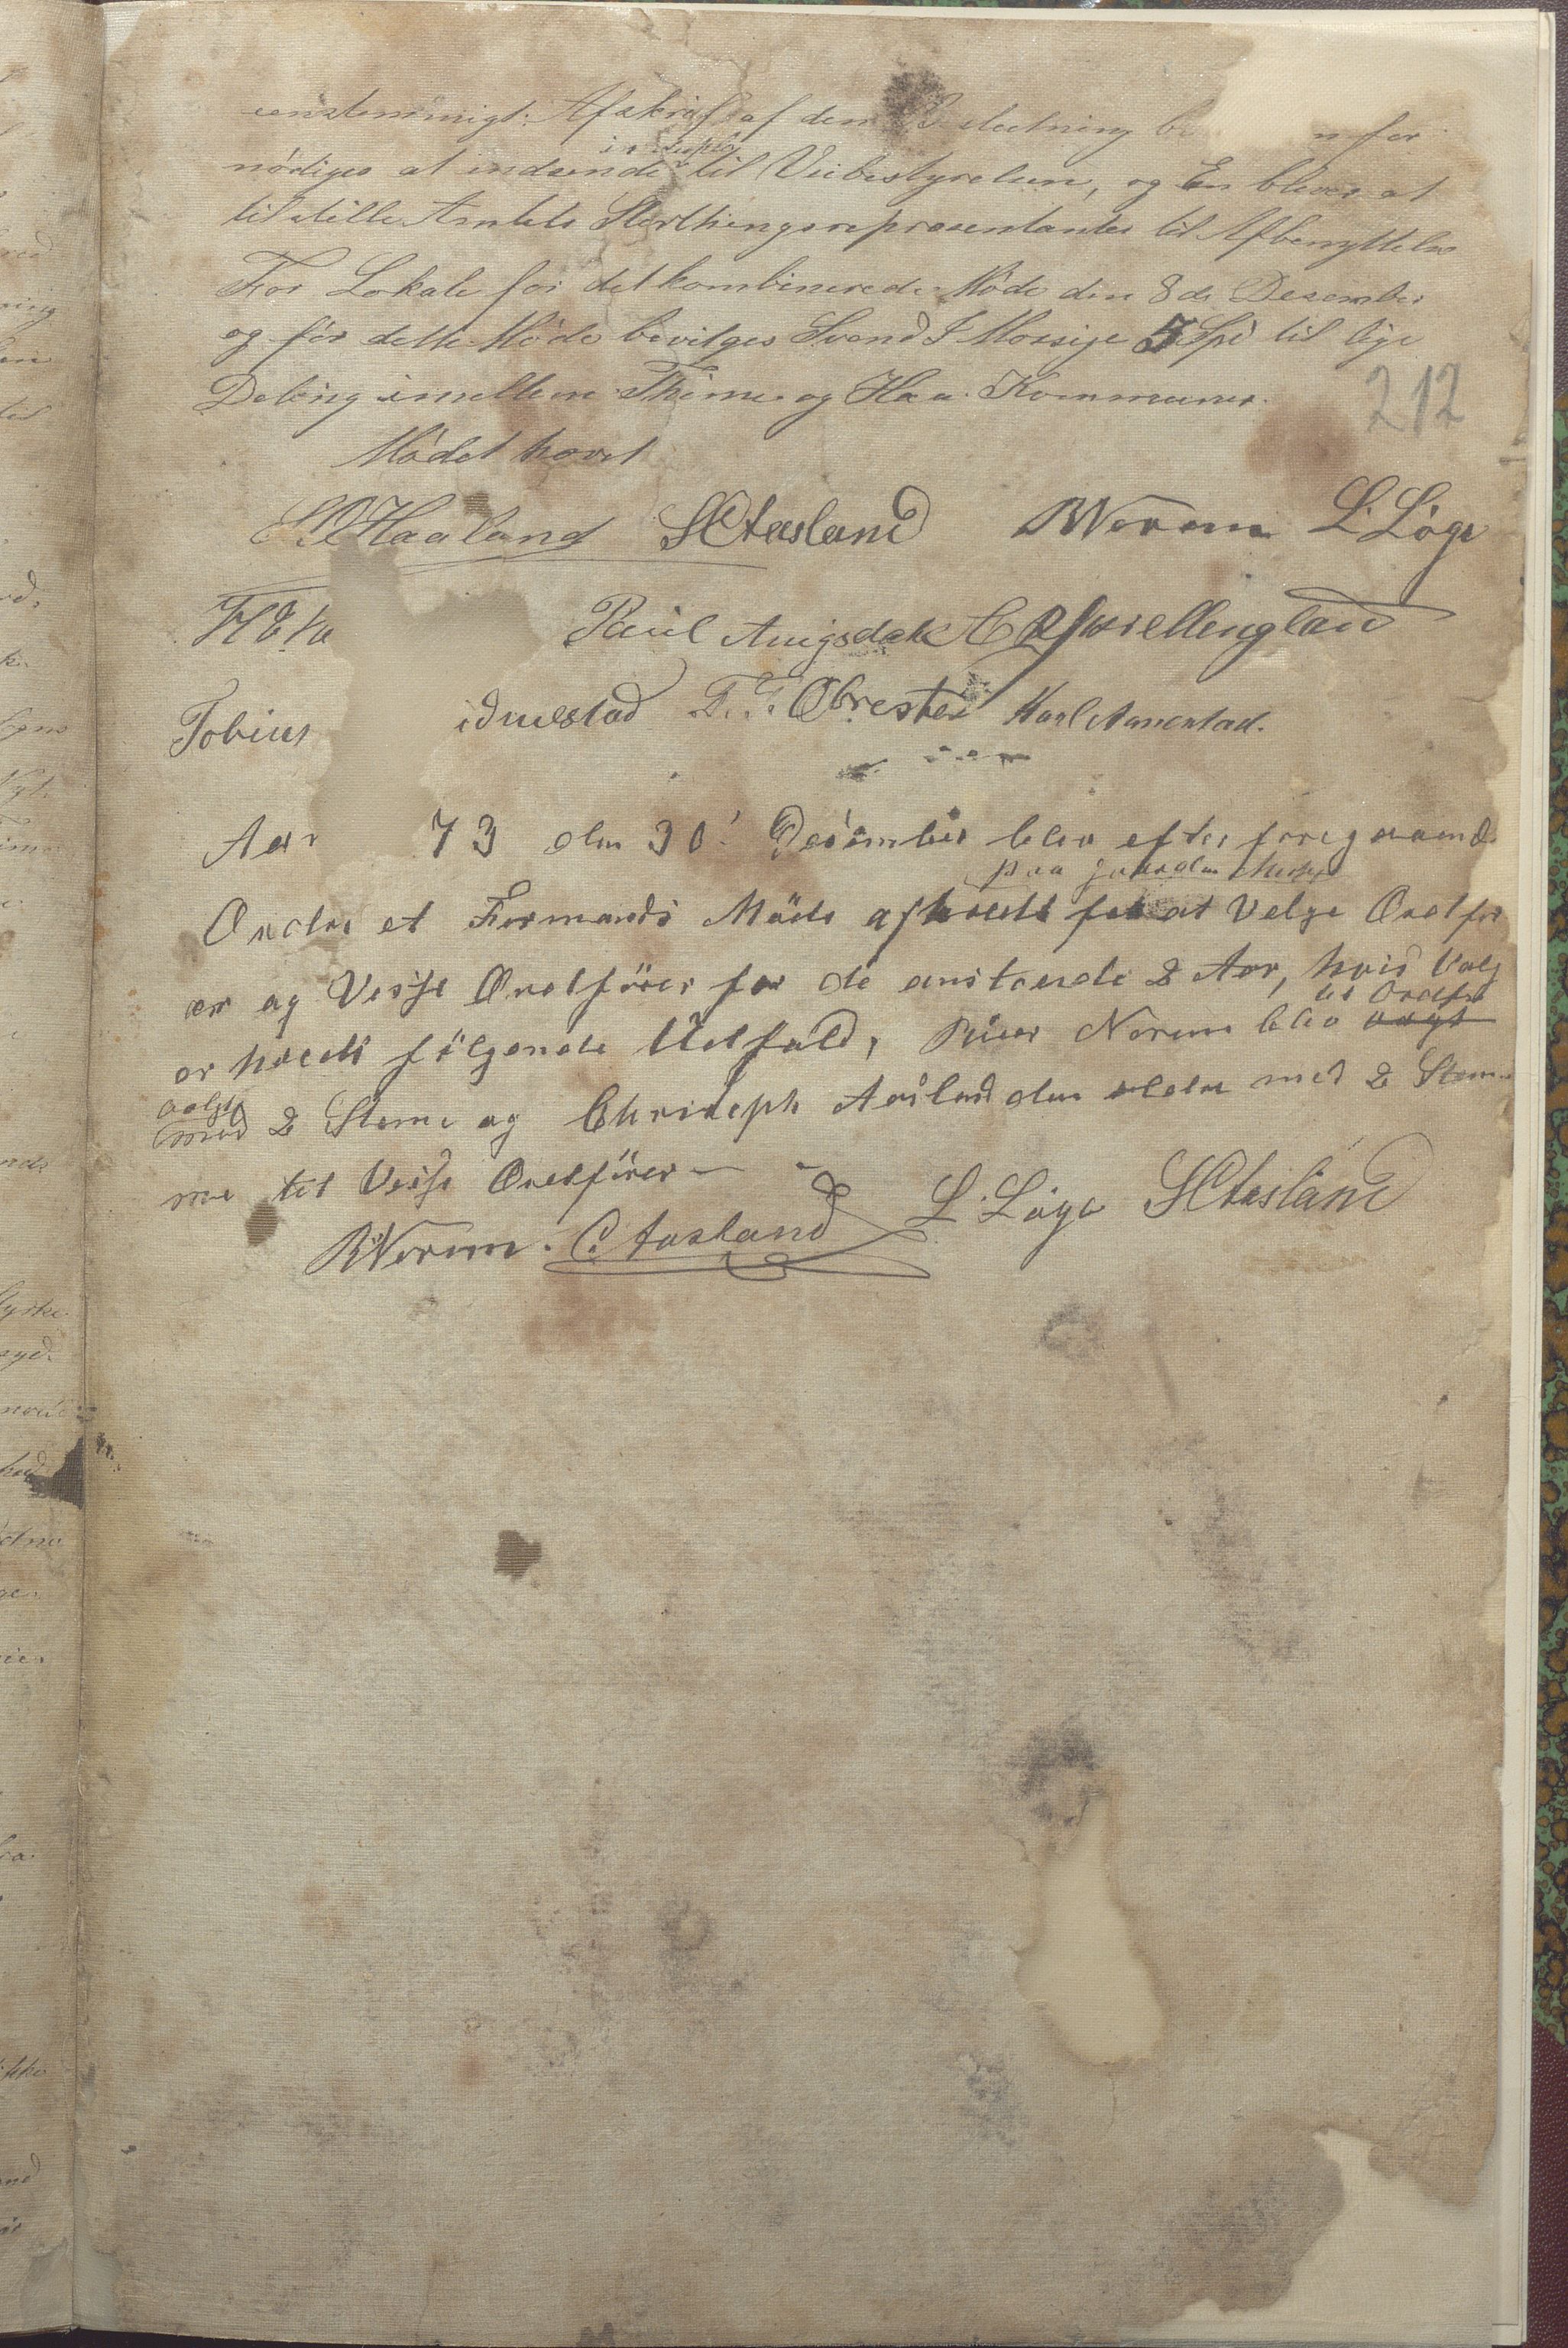 eenstemmigt: Afskrift af denne Beslutning
in duplo
nödiges at indsende til Veibestyrelsen, og En bliver at
tilstille Amtets Storthingsrepræsentanter til Afbenyttelse
For Lokale for det kombinerede Möde den 8de Desember
og for dette Möde bevilges Svend I Mossige 5 Spd til lige
Deling imellem Thime og Haa Kommuner.
212
Mödet hævet
Haaland S C Aasland R Nærum L. Löge
Paul Auigsdak
Tobias idnestad T. T. Obrestad Karl Auestad.
Aar 73 den 30' Desember blev efter foregaaende
paa
Ordre et Formands Möde afholdt for at Velge Ordför
er og Visse Ordförer for de anstaaende 2 Aar, hvis Valg
til Ordför
er havdt fölgende Udfald, Rier Nærum blev valgt
valgt
med 2 Steme og Christoph Aasland den eldre med 2 Stem
me til Visse Ordförer
R Nærum. C. Aasland L. Löge S C Aasland